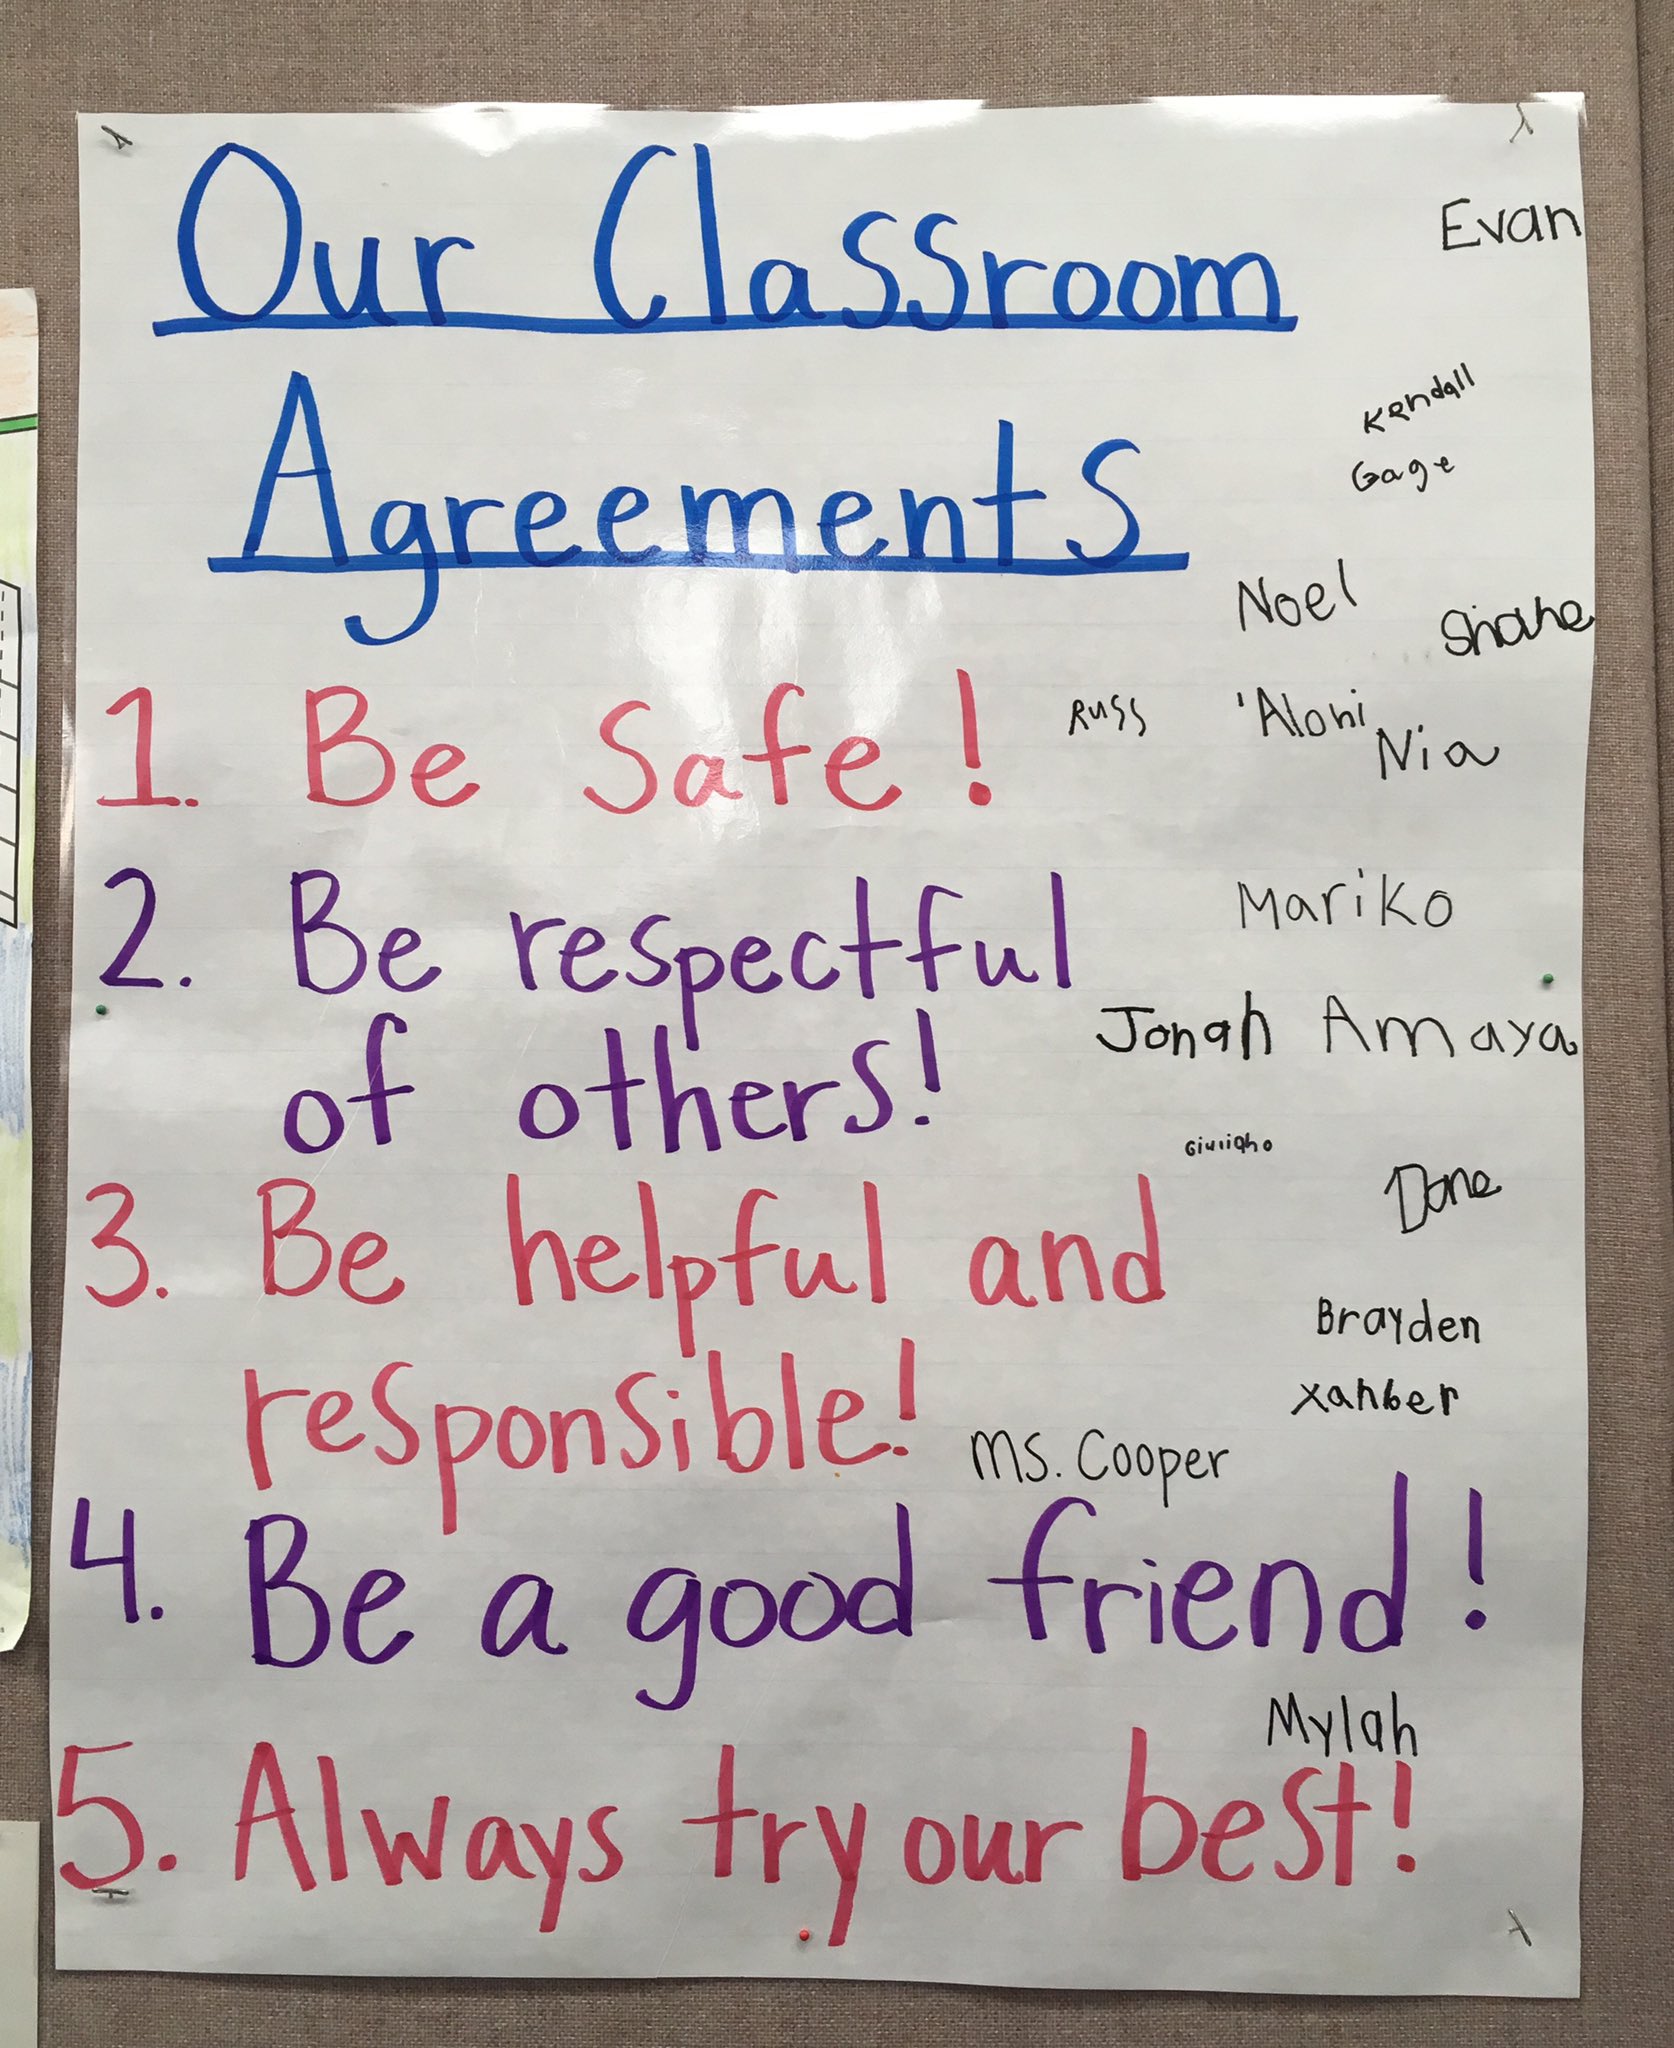 Our Classroom
Evan
Agreements
Kendall
Gage
Noel
Shane
1. Be Safe!
Russ
'Aloni
Nia
2. Be respectful
Mariko
of others!
Jonah Amaya
Giuliano
3. Be helpful and
Dane
Brayden
responsible!
Xanber
Ms. Cooper
4. Be a good friend!
Mylah
5. Always try our best!